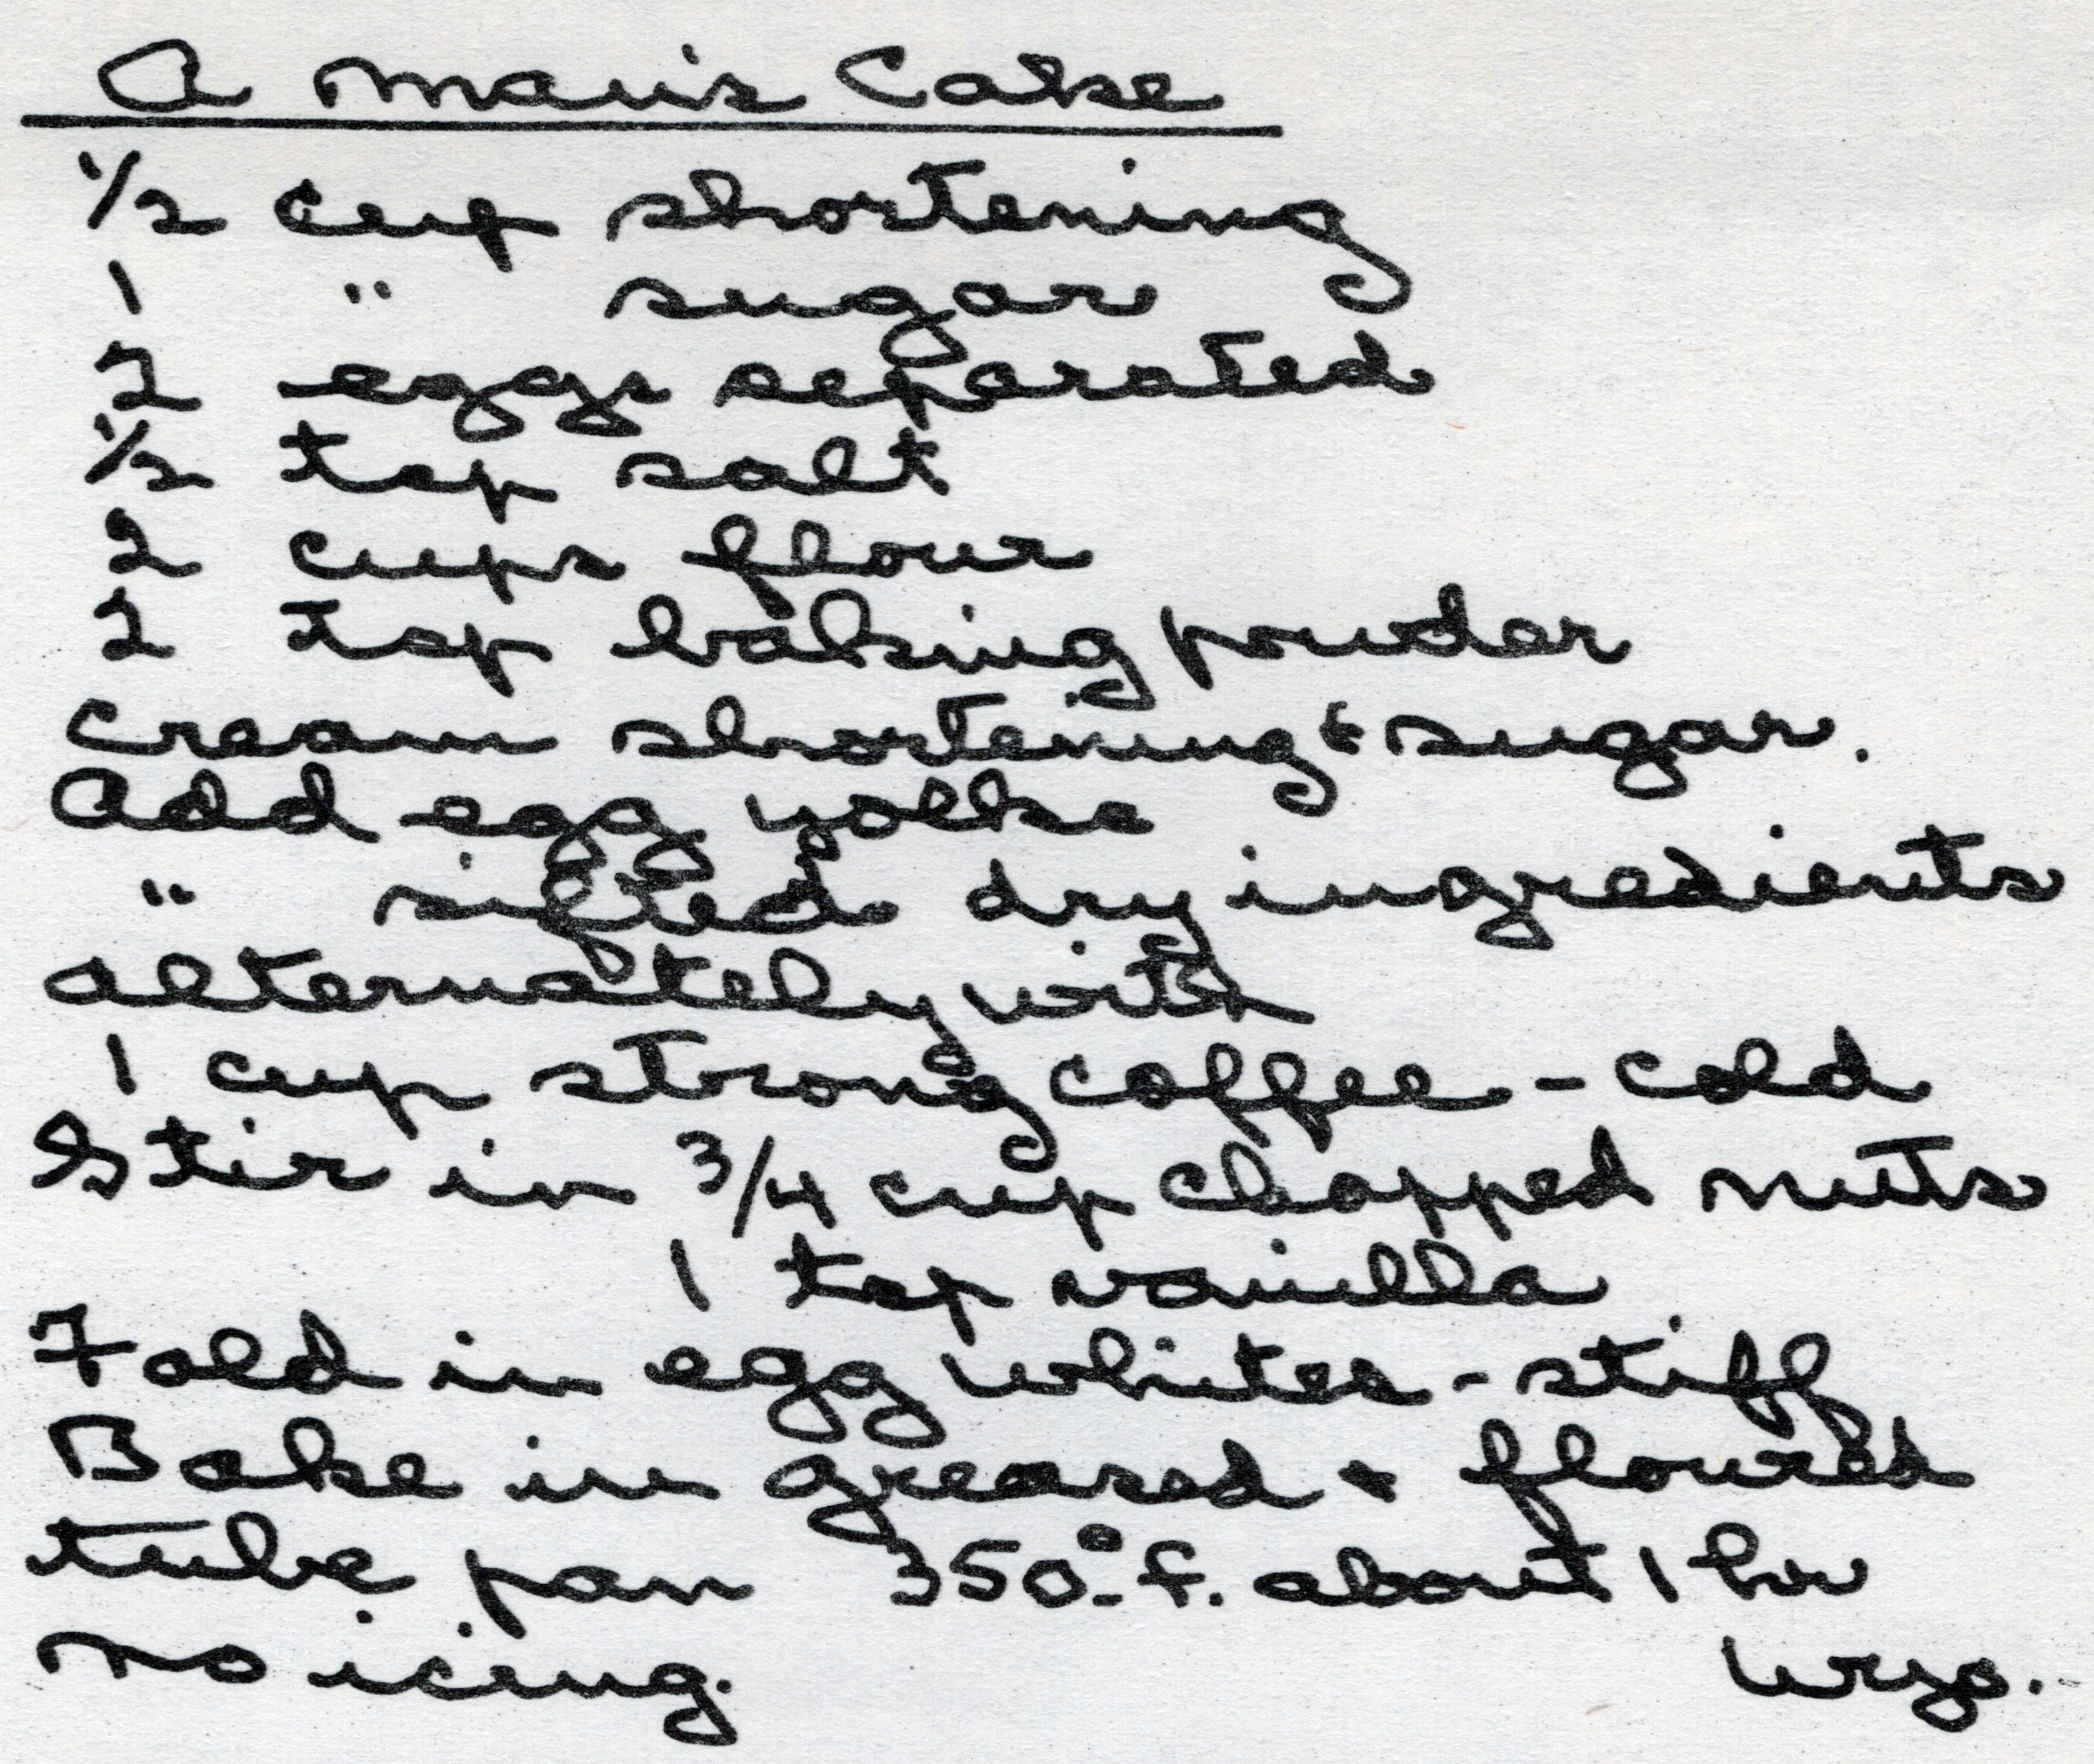 A Man's Cake
1/2 cup shortening
1 " sugar
2 eggs separated
1/2 tsp salt
2 cups flour
2 tsp baking powder
Cream shortening & sugar.
Add egg yolks
" sifted dry ingredients
alternately with
1 cup strong coffee - cold
Stir in 3/4 cup chopped nuts
1 tsp vanilla
Fold in egg whites - stiff
Bake in greased & floured
tube pan 350° f. about 1 hr
no icing.